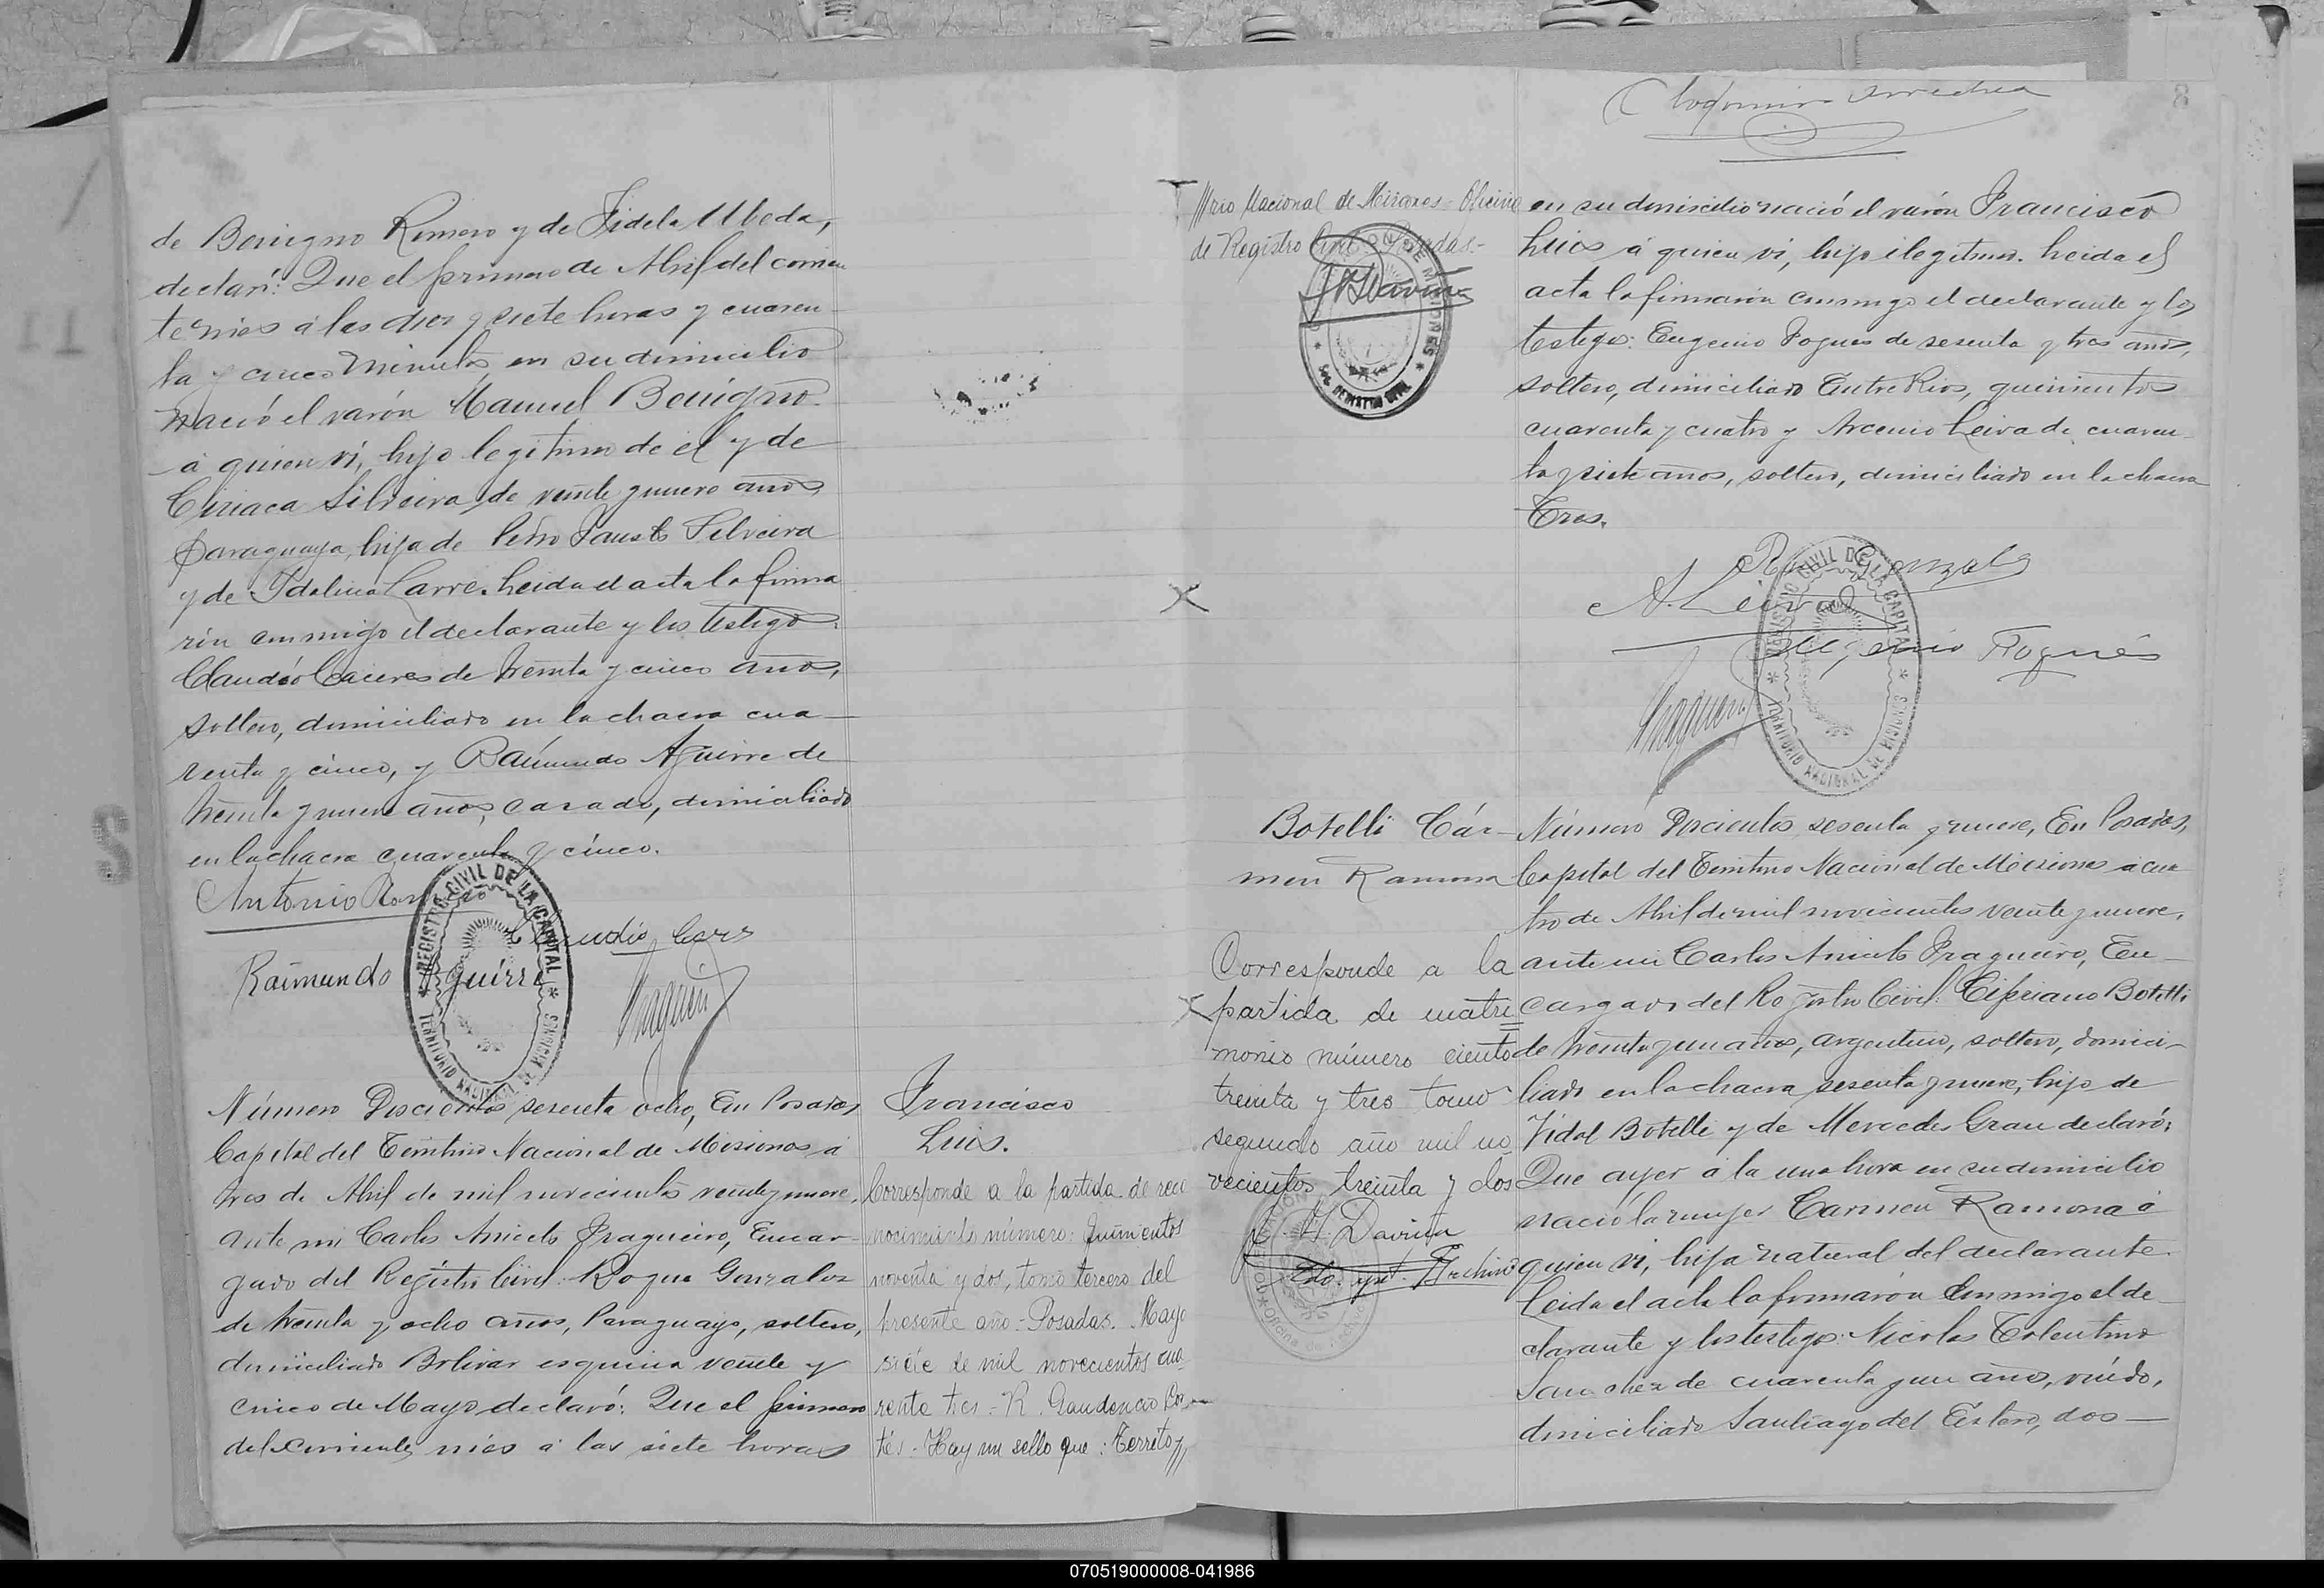 de Benigno Romero y de Fidela Ubeda,
declaró: Que el primero de Abril del corrien
te mes á las diez y siete horas y cuaren
ta y cinco minutos en su domicilio
nació el varón Manuel Benigno
á quien vi, hijo legítimo de el y de
Ciriaca Silveira de veinte y nueve años
Paraguaya, hija de Pedro Fausto Silveira
y de Idalina Larre. Leida el acta la firma
ron conmigo el declarante y los testigos:
Claudio Caceres de treinta y cinco años,
soltero, domiciliado en la chacra cua
renta y cinco, y Raimundo Aguirre de
treinta y nueve años, casado, domiciliado
en la chacra cuarenta y cinco.
Antonio Rom
Claudio
Raimundo Aguirre
REGISTRO CIVIL DE LA CAPITAL
TERRITORIO NACIONAL DE MISIONES
Número Doscientos sesenta ocho, En Posadas
Capital del Territorio Nacional de Misiones á
tres de Abril de mil novecientos veinte y nueve,
ante mi Carlos Aniceto Fragueiro, Encar
gado del Registro Civil: Roque Gonzalez
de treinta y ocho años, Paraguayo, soltero,
domiciliado Bolivar esquina veinte y
cinco de Mayo declaró: Que el primero
del corriente mes á las siete horas
Francisco
Luis.
Corresponde a la partida de reco
nocimiento número: Quinientos
noventa y dos, tomo tercero del
presente año - Posadas. Mayo
siete de mil novecientos cua
renta tres - R. Gaudencio Cor
tés - Hay un sello que: Territo
8
rio Nacional de Misiones - Oficina
de Registro Civil Posadas.-
en su domicilio nació el varón Francisco
Luis á quien vi, hijo ilegitimo. Leida el
acta la firmaron conmigo el declarante y los
testigos: Eugenio Fogues de sesenta y tres años,
soltero, domiciliado Entre Rios, quinientos
cuarenta y cuatro y Arcenio Leiva de cuaren
ta y siete años, soltero, domiciliado en la chacra
Tres.
R. Gonzalez
A. Leiva
Eugenio Fogués
REGISTRO CIVIL DE LA CAPITAL
TERRITORIO NACIONAL DE MISIONES
Botelli Cár-
men Ramona
Corresponde a la
partida de matri
monio número ciento
treinta y tres tomo
segundo año mil no
vecientos treinta y dos
Número Doscientos sesenta y nueve, En Posadas,
Capital del Territorio Nacional de Misiones á cua
tro de Abril de mil novecientos veinte y nueve,
ante mi Carlos Aniceto Fragueiro, En
cargado del Registro Civil: Cipriano Botelli
de treinta y un años, argentino, soltero, domici-
liado en la chacra sesenta y nueve, hijo de
Vidal Botelli y de Mercedes Grau declaró:
Que ayer á la una hora en su domicilio
nació la mujer Carmen Ramona á
quien vi, hija natural del declarante.
Leida el acta la firmaron conmigo el de
clarante y los testigos: Nicolas Tolentino
Sanchez de cuarenta y un años, viúdo,
domiciliado Santiago del Estero, dos
070519000008-041986